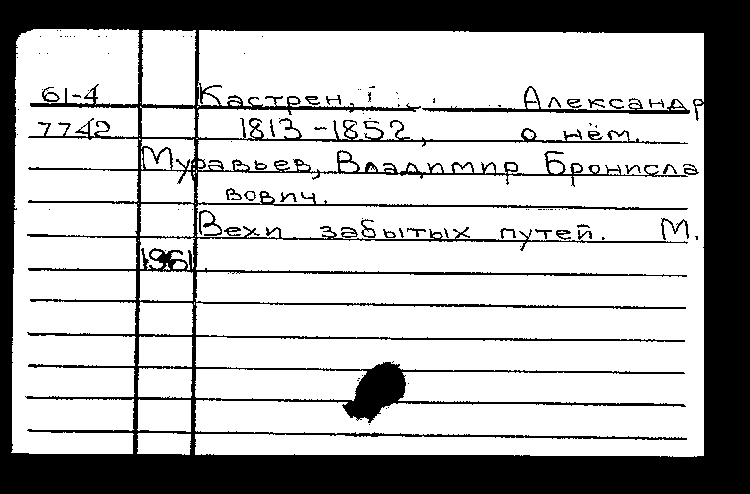 61-4 Кастрен, Александр
7742 1813-1852, о нём.
Муравьев, Владимир Бронисла
вович.
Вехи забытых путей. М.
1961